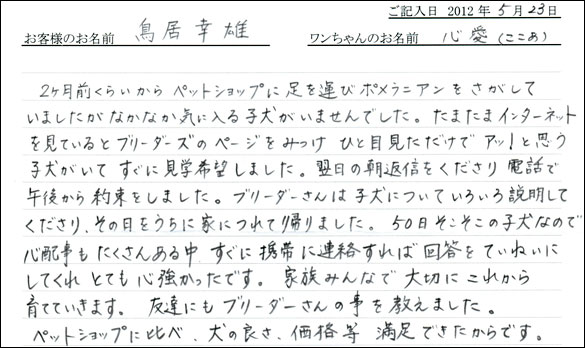 ご記入日 2012年5月23日
お客様のお名前 鳥居幸雄 ワンちゃんのお名前 心愛(ここあ)
2ヶ月前くらいから ペットショップに足を運びポメラニアンをさがして
いましたがなかなか気に入る子犬がいませんでした。たまたまインターネット
を見ているとブリーダーズのページをみつけ ひと目見ただけでアッ!と思う
子犬がいて すぐに見学希望しました。翌日の朝返信をくださり電話で
午後から約束をしました。ブリーダーさんは子犬についていろいろ説明して
くださり、その日をうちに家につれて帰りました。50日そこそこの子犬なので
心配事もたくさんある中 すぐに携帯に連絡すれば回答をていねいに
してくれ とても心強かったです。家族みんなで大切にこれから
育てていきます。 友達にもブリーダーさんの事を教えました。
ペットショップに比べ、犬の良さ、価格等 満足できたからです。